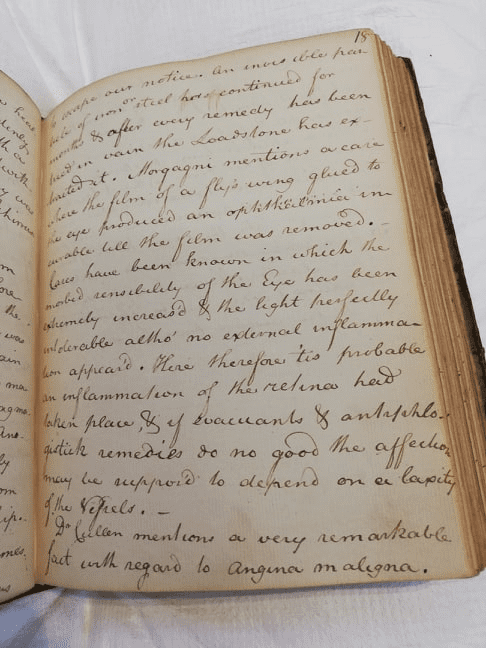 18
to escape our notice. An invisible par-
ticle of iron or steel has continued for
months & after every remedy has been
tried in vain the Loadstone has ex-
tracted it. Morgagni mentions a case
where the film of a fly's wing glued to
the eye produced an ophthalmia in-
curable till the film was removed. -
Cases have been known in which the
morbid sensibility of the Eye has been
extremely increas'd & the light perfectly
intolerable altho' no external inflamma-
tion appear'd. Here therefore 'tis probable
an inflammation of the retina had
taken place, & if evacuants & antiphlo-
gistick remedies do no good the affection
may be suppos'd to depend on a laxity
of the Vessels. -
Dr Cullen mentions a very remarkable
fact with regard to Angina maligna.